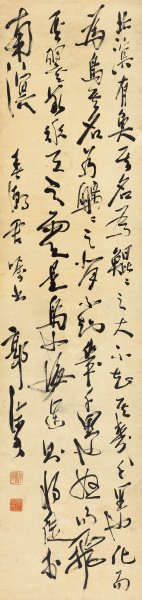 北溟有魚其名為鯤鯤之大不知其幾千里也化而
為鳥其名為鵬鵬之背不知幾千里也怒而飛
其翼若垂天之雲是鳥也海運則將徙於
南溟
君囑書 郭